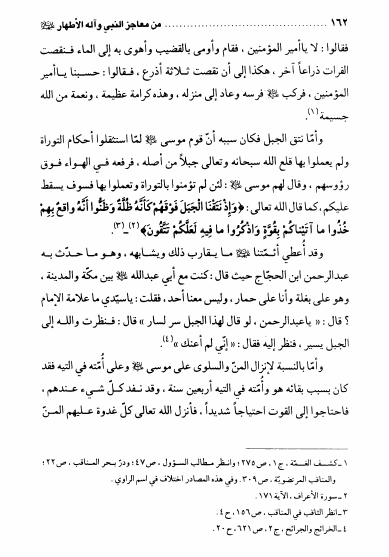 ١٦٢ ................................................ من معاجز النبي وآله الأطهار ﷺ
فقالوا : لا ياأمير المؤمنين ، فقام وأومى بالقضيب وأهوى به إلى الماء فنقصت
الفرات ذراعاً آخر ، هكذا إلى أن نقصت ثلاثة أذرع ، فقالوا : حسبنا ياأمير
المؤمنين ، فركب ﷺ فرسه وعاد إلى منزله ، وهذه كرامة عظيمة ، ونعمة من الله
جسيمة (١).
وأمّا نتق الجبل فكان سببه أنّ قوم موسى ﷺ لمّا استثقلوا أحكام التوراة
ولم يعملوا بها قلع الله سبحانه وتعالى جبلاً من أصله ، فرفعه في الهواء فوق
رؤوسهم ، وقال لهم موسى ﷺ : لئن لم تؤمنوا بالتوراة وتعملوا بها فسوف يسقط
عليكم ، كما قال الله تعالى : ﴿وَإِذْ نَتَقْنَا الْجَبَلَ فَوْقَهُمْ كَأَنَّهُ ظُلَّةٌ وَظَنُّوا أَنَّهُ وَاقِعٌ بِهِمْ
خُذُوا ما آتَيْنَاكُمْ بِقُوَّةٍ وَاذْكُرُوا ما فِيهِ لَعَلَّكُمْ تَتَّقُونَ﴾ (٢) ـ (٣).
وقد أُعطي أئمّتنا ﷺ ما يقارب ذلك ويشابهه ، وهو ما حدّث به
عبدالرحمن ابن الحجّاج حيث قال : كنت مع أبي عبدالله ﷺ بين مكّة والمدينة ،
وهو على بغلة وأنا على حمار ، وليس معنا أحد ، فقلت : ياسيّدي ما علامة الإمام
؟ قال : « ياعبدالرحمن ، لو قال لهذا الجبل سر لسار » قال : فـنظرت والله إلى
الجبل يسير ، فنظر إليه فقال : « إنّي لم أعنك » (٤).
وأمّا بالنسبة لإنزال المنّ والسلوى على موسى ﷺ وعلى أُمّته في التيه فقد
كان بسبب بقائه هو وأُمّته في التيه أربعين سنة ، وقد نفد كلّ شيء عندهم ،
فاحتاجوا إلى القوت احتياجاً شديداً ، فأنزل الله تعالى كلّ غدوة عليهم المنّ
١ ـ كشف الغمّة ، ج١ ، ص٢٧٥ ؛ وانظر مطالب السؤول ، ص٤٧ ؛ ودرّ بحر المناقب ، ص٢٢ ؛
والمناقب المرتضويّة ، ص٣٠٩. وفي هذه المصادر اختلاف في اسم الراوي .
٢ ـ سورة الأعراف ، الآية ١٧١.
٣ ـ انظر الثاقب في المناقب ، ص١٥٦ ، ح٤.
٤ ـ الخرائج والجرائح ، ج٢ ، ص٦٢١ ، ح٢٠.